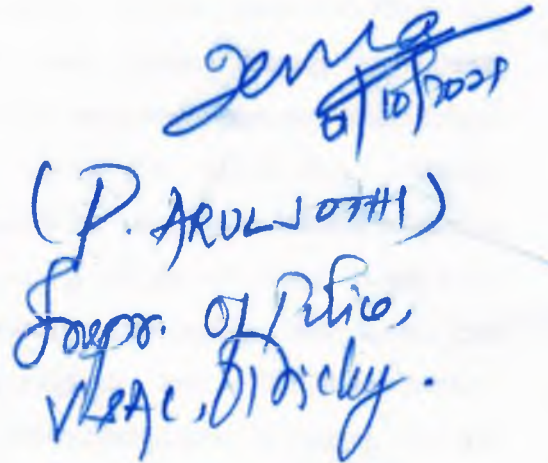 01/10/2021
(P. ARULJOTHI)
Inspr. of Police,
V&AC, Trichy.